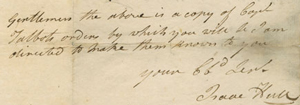 Gentlemen the above is a copy of Capt
Talbots orders by which you will see I am
directed to make them known to you
your Obd Servt
Isaac Hull